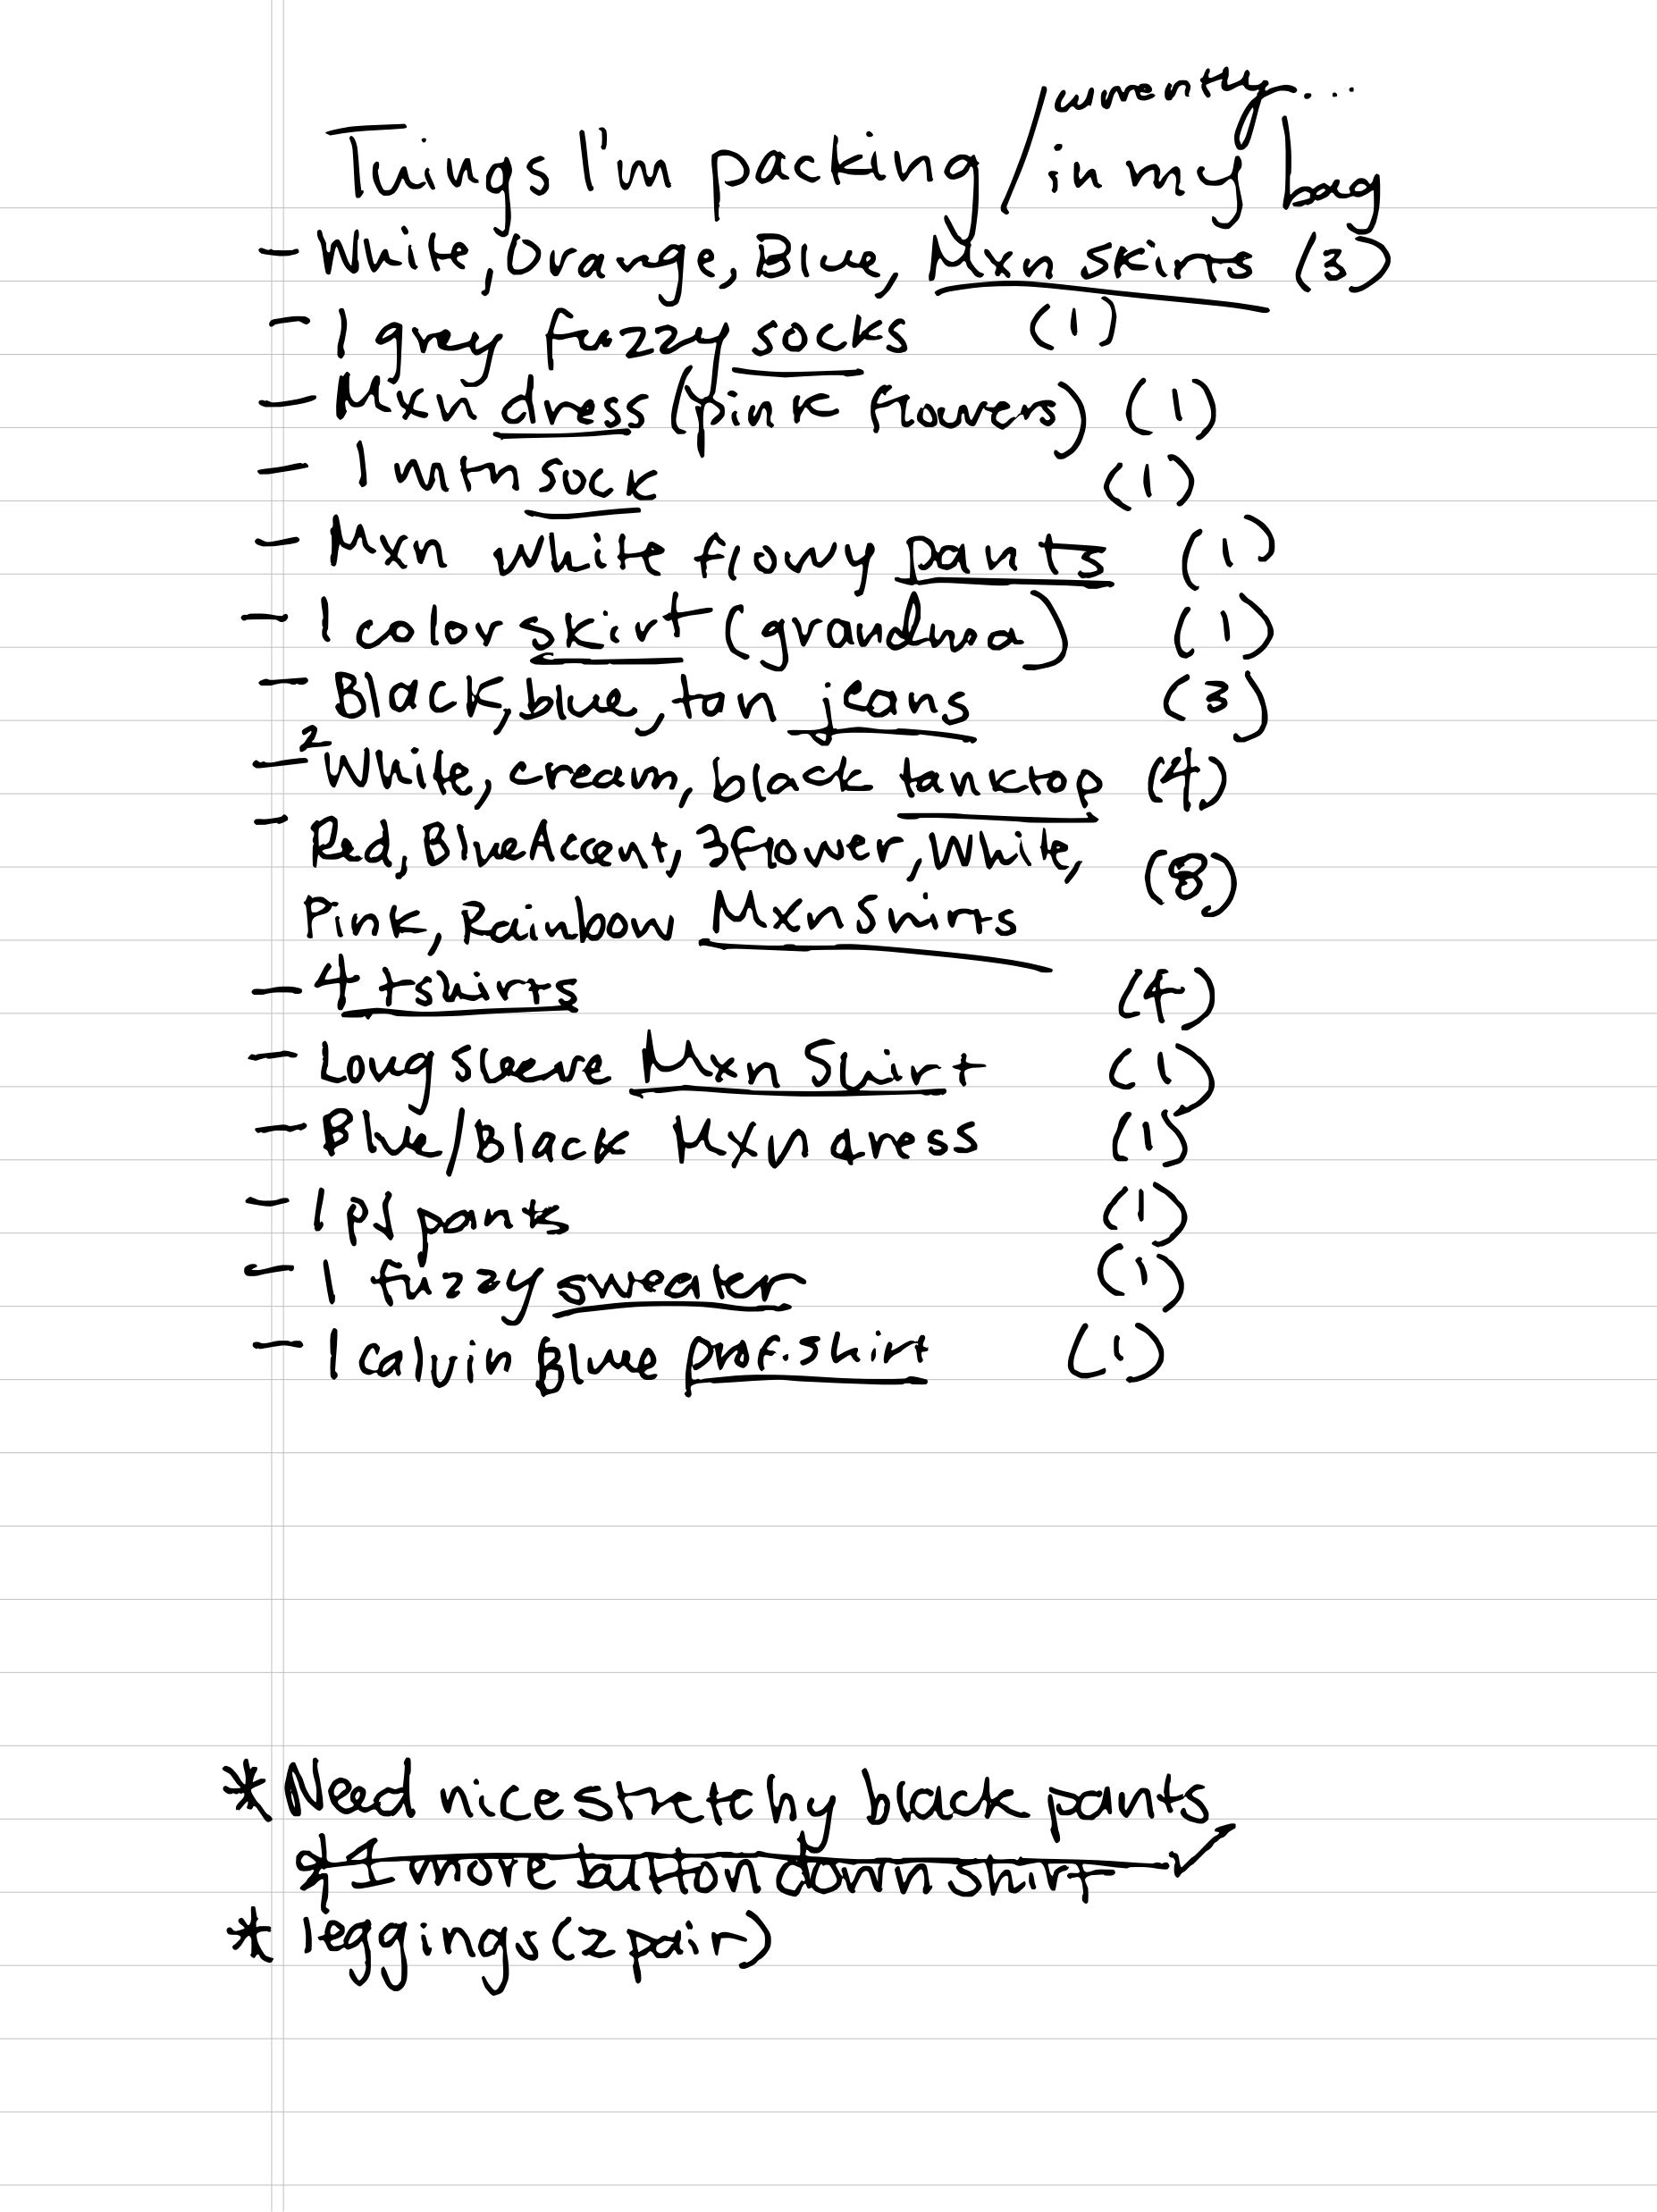 currently...
Things I'm packing / in my bag
- White, Orange, Blue, Mxn skirts (3)
- 1 grey fuzzy socks (1)
- Mxn dress (pink flowers) (1)
- 1 sock (1)
- Mxn white flowy pants (1)
- 1 color skirt (grandma) (1)
- Black, blue, tan jeans (3)
- 2 White, cream, black tanktop (4)
- Red, Blue Accent, 3 flower, White, (8)
Pink, Rainbow Mxn Shirts
- 4 tshirts (4)
- Long sleeve Mxn Shirt (1)
- Blue/Black Mxn dress (1)
- 1 pj pants (1)
- 1 fuzzy sweater (1)
- 1 calvin Blue prof. shirt (1)
* Need nice stretchy black pants
* 1 more button down shirt
* leggings (2 pair)